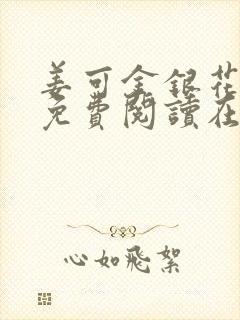 姜可金銀花
免費閱讀在
心如飛絮